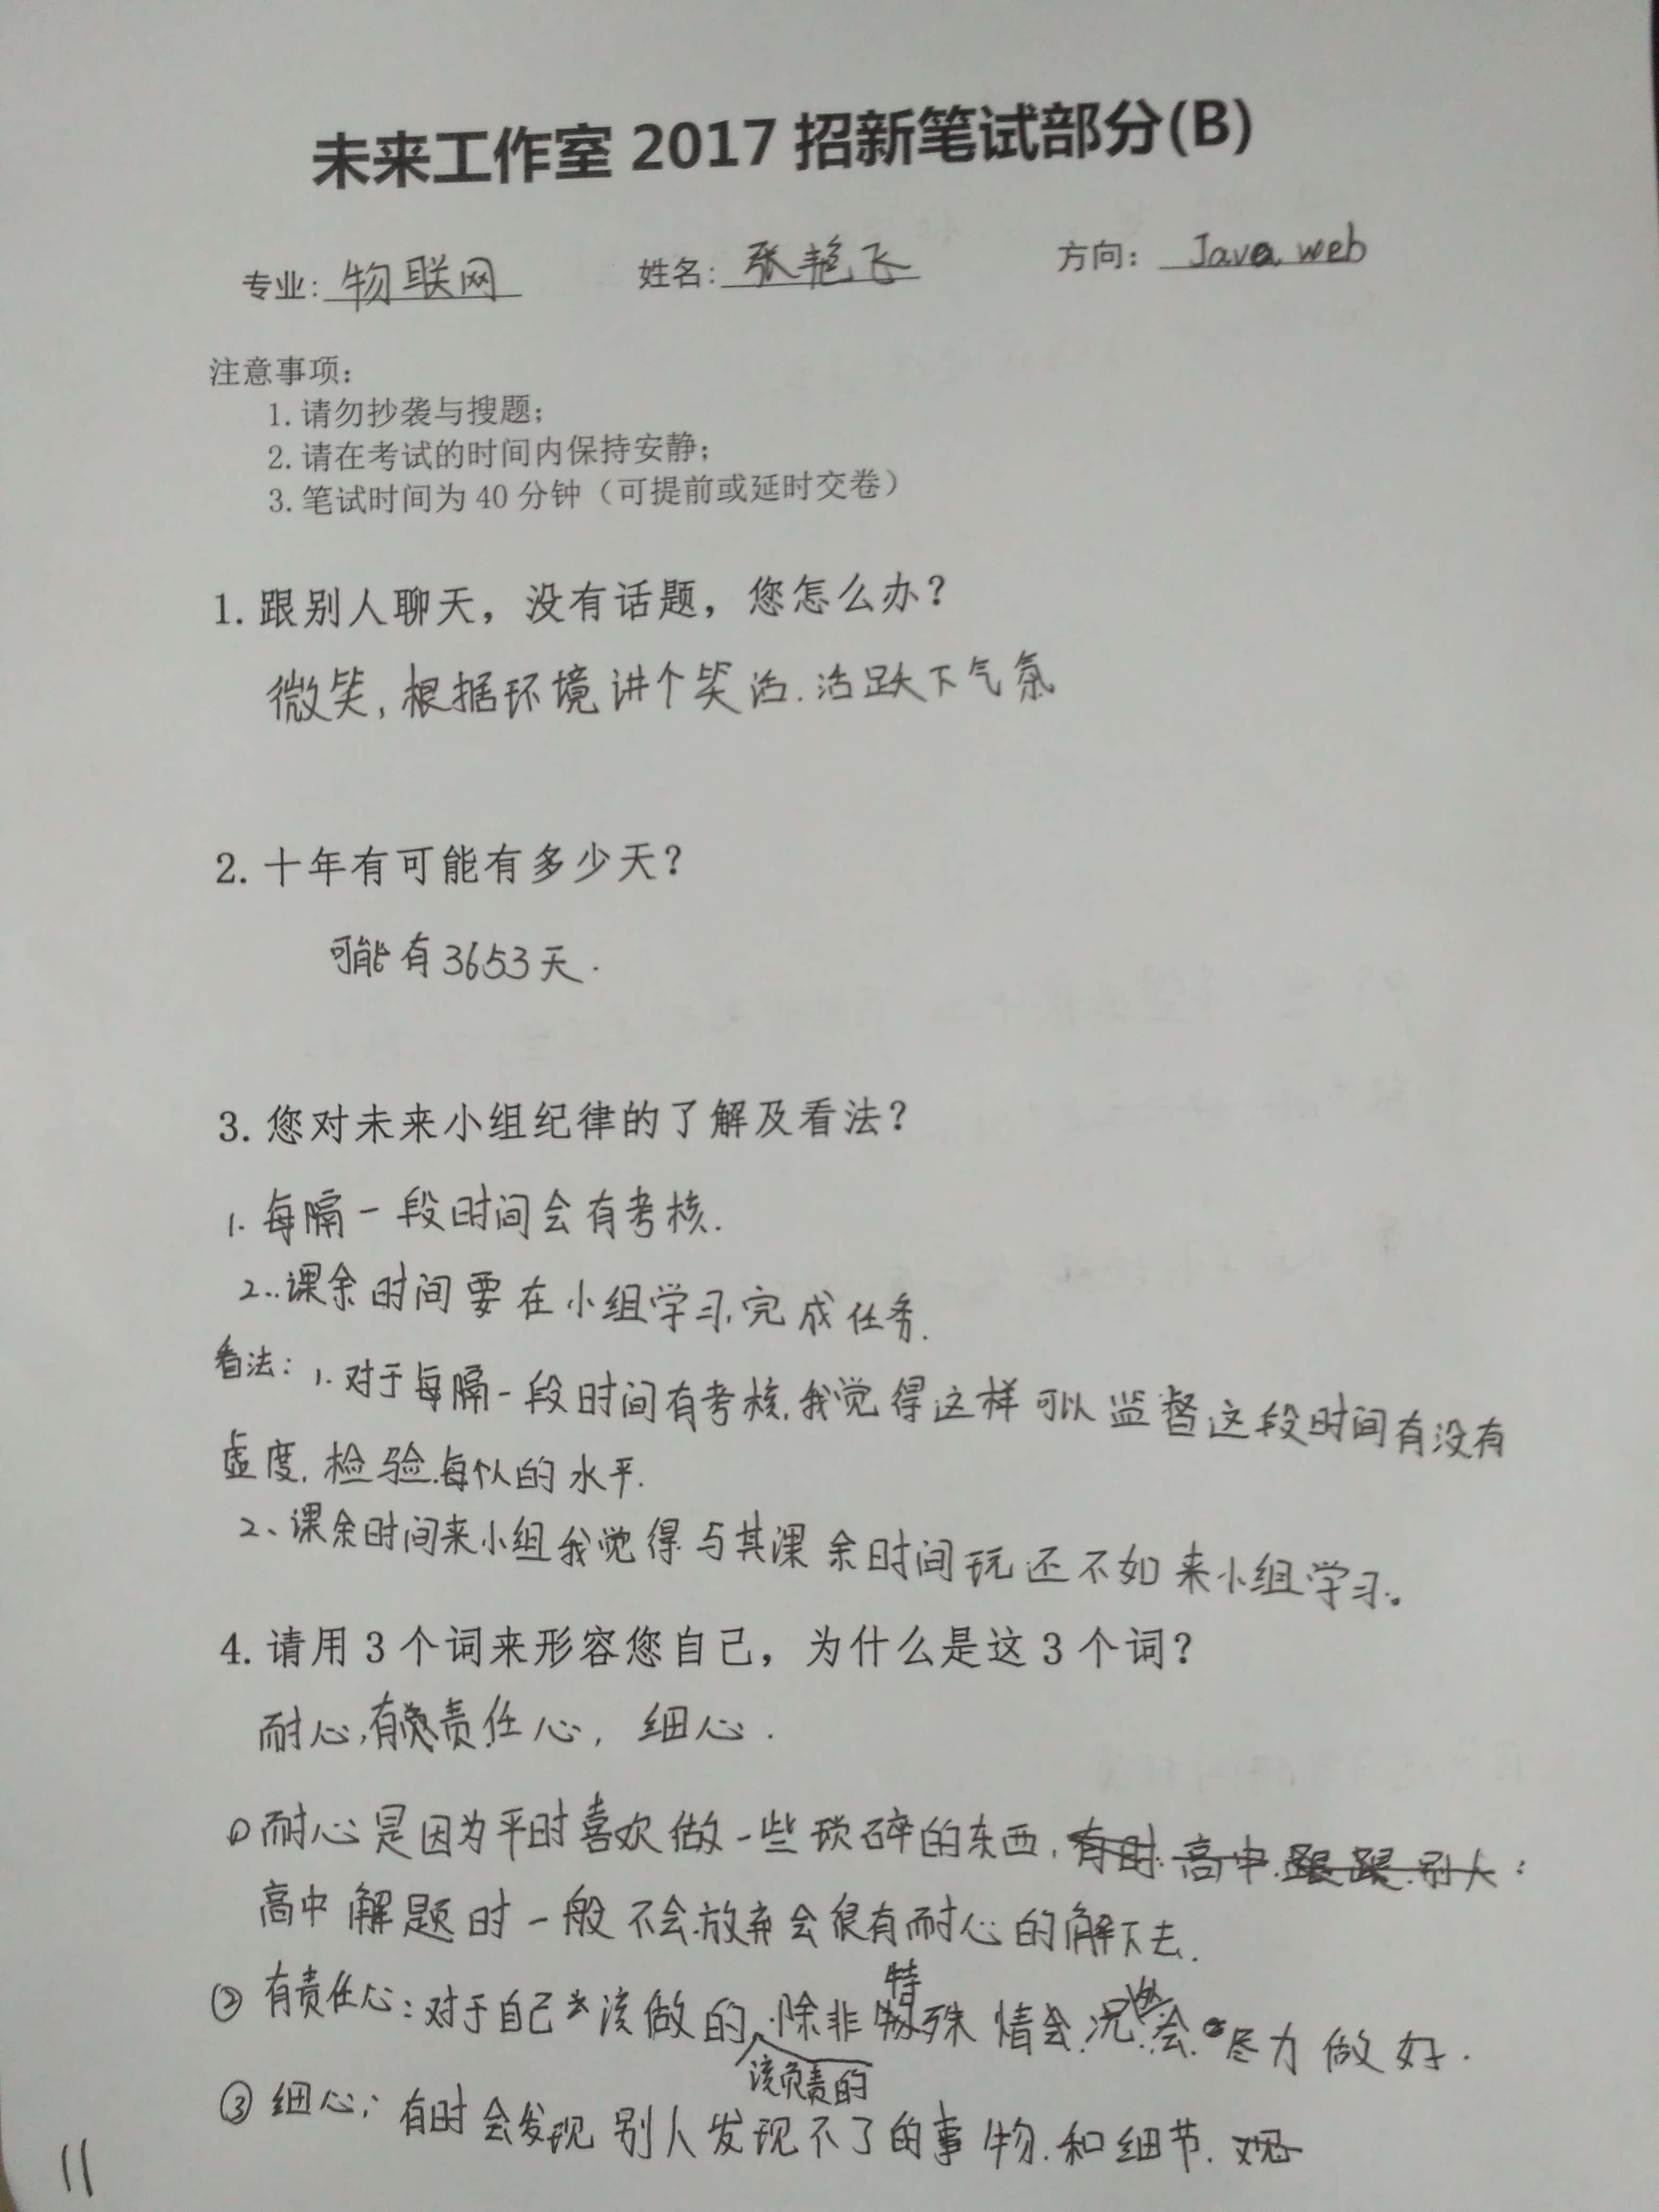 未来工作室 2017 招新笔试部分(B)
专业: 物联网 姓名: 张艳飞 方向: Java web
注意事项:
1. 请勿抄袭与搜题;
2. 请在考试的时间内保持安静;
3. 笔试时间为 40 分钟（可提前或延时交卷）
1. 跟别人聊天，没有话题，您怎么办？
微笑, 根据环境讲个笑话. 活跃下气氛
2. 十年有可能有多少天？
可能有3653天.
3. 您对未来小组纪律的了解及看法？
1. 每隔一段时间会有考核.
2.. 课余时间要在小组学习, 完成任务.
看法: 1. 对于每隔一段时间有考核, 我觉得这样可以监督这段时间有没有
虚度, 检验每个人的水平.
2、课余时间来小组我觉得与其课余时间玩还不如来小组学习.。
4. 请用 3 个词来形容您自己，为什么是这 3 个词？
耐心, 有责任心, 细心.
① 耐心是因为平时喜欢做一些琐碎的东西, 有时. 高中. 跟别人:
高中解题时一般不会放弃会很有耐心的解下去.
② 有责任心: 对于自己去该做的 该负责的, 除非特殊情况会尽力做好.
③ 细心: 有时会发现别人发现不了的事物. 和细节.
11